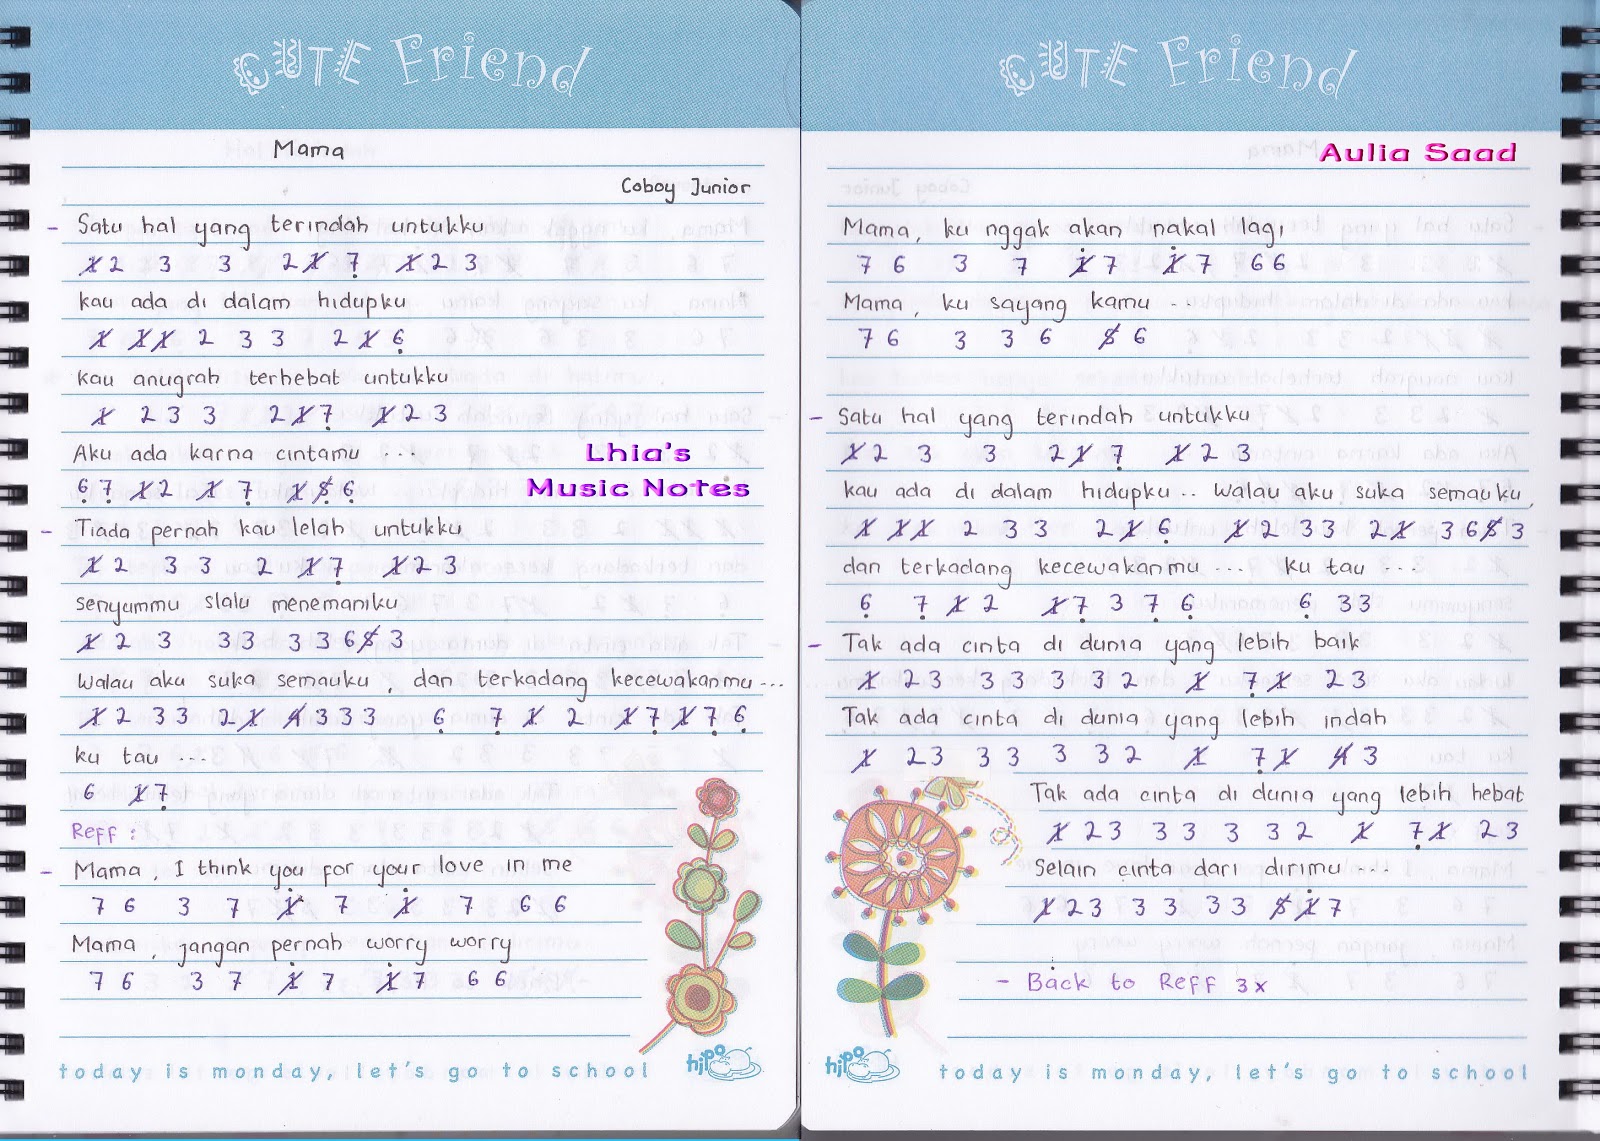 CUTE Friend
Mama
Coboy Junior
- Satu hal yang terindah untukku
1̸ 2 3 3 2 1̸ 7̣ 1̸ 2 3
kau ada di dalam hidupku
1̸ 1̸ 1̸ 2 3 3 2 1̸ 6̣
kau anugrah terhebat untukku
1̸ 2 3 3 2 1̸ 7̣ 1̸ 2 3
Aku ada karna cintamu ...
6̣ 7̣ 1̸ 2 1̸ 7̣ 1̸ 5̸̣ 6̣
Lhia's
Music Notes
- Tiada pernah kau lelah untukku
1̸ 2 3 3 2 1̸ 7̣ 1̸ 2 3
senyummu slalu menemaniku
1̸ 2 3 3 3 3 3 6 5̸ 3
walau aku suka semauku , dan terkadang kecewakanmu ...
1̸ 2 3 3 2 1̸ 4̸ 3 3 3 6̣ 7̣ 1̸ 2 1̸ 7̣ 1̸ 7̣ 6̣
ku tau ...
6 1̸ 7̣
Reff :
- Mama , I think you for your love in me
7 6 3 7 1̸̇ 7 1̸̇ 7 6 6
Mama , jangan pernah worry worry
7 6 3 7 1̸̇ 7 1̸̇ 7 6 6
today is monday, let's go to school
hipo
CUTE Friend
Aulia Saad
Mama , ku nggak akan nakal lagi
7 6 3 7 1̸̇ 7 1̸̇ 7 6 6
Mama , ku sayang kamu ...
7 6 3 3 6 5̸ 6
- Satu hal yang terindah untukku
1̸ 2 3 3 2 1̸ 7̣ 1̸ 2 3
kau ada di dalam hidupku .. walau aku suka semauku,
1̸ 1̸ 1̸ 2 3 3 2 1̸ 6̣ 1̸ 2 3 3 2 1̸ 3 6 5̸ 3
dan terkadang kecewakanmu ... ku tau ...
6̣ 7̣ 1̸ 2 1̸ 7̣ 3 7̣ 6̣ 6̣ 3 3
- Tak ada cinta di dunia yang lebih baik
1̸ 2 3 3 3 3 3 2 1̸ 7̣ 1̸ 2 3
Tak ada cinta di dunia yang lebih indah
1̸ 2 3 3 3 3 3 2 1̸ 7̣ 1̸ 4̸ 3
Tak ada cinta di dunia yang lebih hebat
1̸ 2 3 3 3 3 3 2 1̸ 7̣ 1̸ 2 3
Selain cinta dari dirimu ....
1̸ 2 3 3 3 3 3 5̸ 1̸̇ 7
- Back to Reff 3x
hipo
today is monday, let's go to school